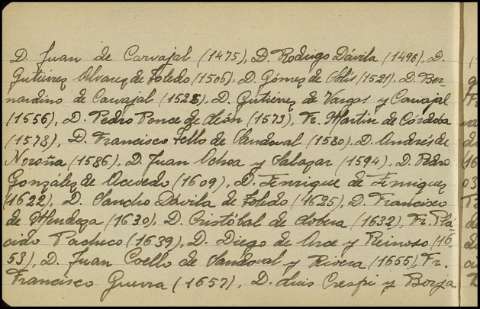 D. Juan de Carvajal (1475), D. Rodrigo Dávila (1496), D.
Gutiérrez Alvarez de Toledo (1506), D. Gómez de Solís (1521), D. Ber-
nardino de Carvajal (1523), D. Gutiérrez de Vargas y Carvajal
(1556), D. Pedro Ponce de León (1573), Fr. Martín de Córdova
(1578), D. Francisco Tello de Sandoval (1580), D. Andrés de
Noroña (1586), D. Juan Ochoa y Salazar (1594), D. Pedro
González de Acevedo (1609), D. Enrique de Enríquez
(1622), D. Sancho Dávila de Toledo (1625), D. Francisco
de Mendoza (1630), D. Cristóbal de Lobera (1632), Fr. Plá-
cido Pacheco (1639), D. Diego de Arce y Reinoso (16
53), D. Juan Coello de Sandoval y Rivera (1655), Fr.
Francisco Guerra (1657), D. Luis Crespi y Borja